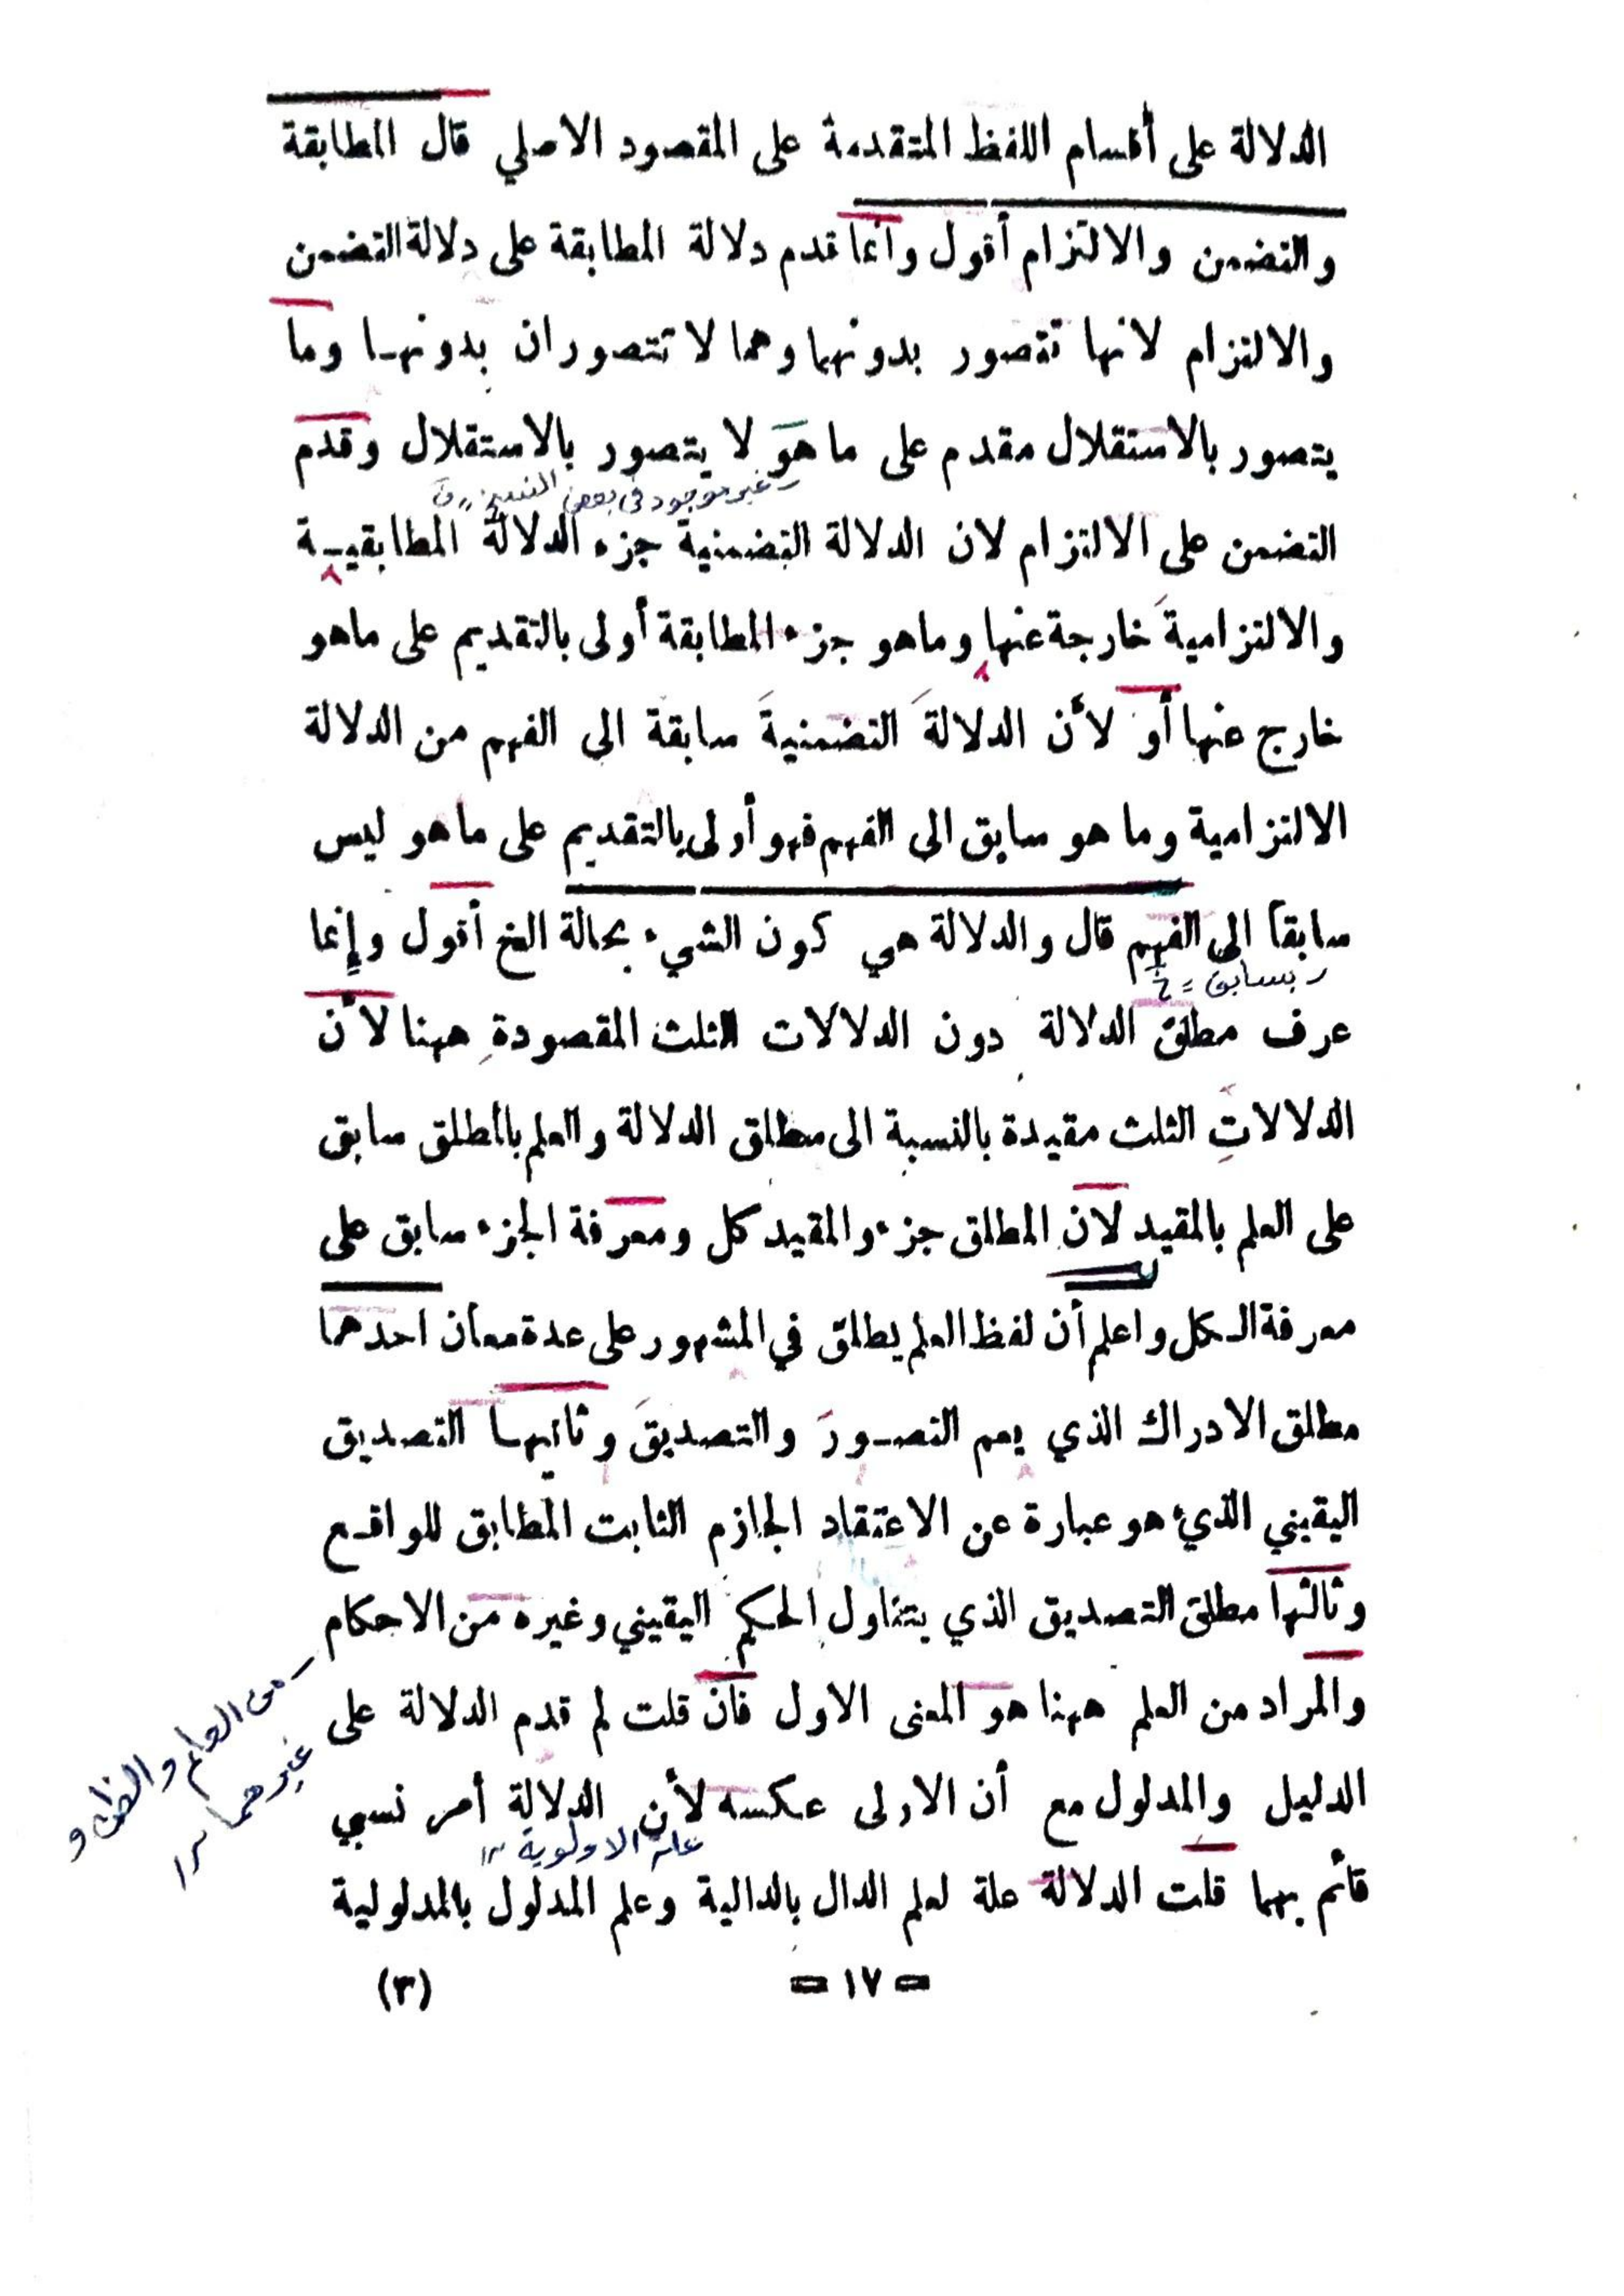 الدلالة على أقسام اللفظ المتقدمة على المقصود الاصلي قال المطابقة
والتضمن والالتزام أقول وانما قدم دلالة المطابقة على دلالة التضمن
والالتزام لانها تتصور بدونهما وهما لا تتصوران بدونهـا وما
يتصور بالاستقلال مقدم على ما هو لا يتصور بالاستقلال وقدم
غير موجود في بعض النسخ
التضمن على الالتزام لان الدلالة التضمنية جزء الدلالة المطابقيـة
والالتزامية خارجة عنها وماهو جزء المطابقة أولى بالتقديم على ماهو
خارج عنها أو لأن الدلالةَ التضمنيةَ سابقة الى الفهم من الدلالة
الالتزامية وما هو سابق الى الفهم فهو أولى بالتقديم على ما هو ليس
سابقاً الى الفهم قال والدلالة هي كون الشيء بحالة الخ أقول وإنما
بسابق
عرف مطلق الدلالة دون الدلالات الثلث المقصودةِ ههنا لأن
الدلالاتِ الثلث مقيدة بالنسبة الى مطلق الدلالة والعلم بالمطلق سابق
على العلم بالمقيد لان المطلق جزء والمقيد كل ومعرفة الجزء سابق على
معرفة الـكل واعلم أن لفظ العلم يطلق في المشهور على عدة معان احدهما
مطلق الادراك الذي يعم التصـورَ والتصديقَ وثانيهـا التصديق
اليقيني الذي هو عبارة عن الاعتقاد الجازم الثابت المطابق للواقـع
وثالثها مطلق التصديق الذي يتناول الحكم اليقيني وغيره من الاحكام
من العلم والظن و
غيرهما
والمراد من العلم ههنا هو المعنى الاول فان قلت لم قدم الدلالة على
الدليل والمدلول مع أن الاولى عكسه لأن الدلالة أمر نسبي
علة الاولوية
قائم بهما قلت الدلالة علة لعلم الدال بالدالية وعلم المدلول بالمدلولية
= ١٧ =
(٣)